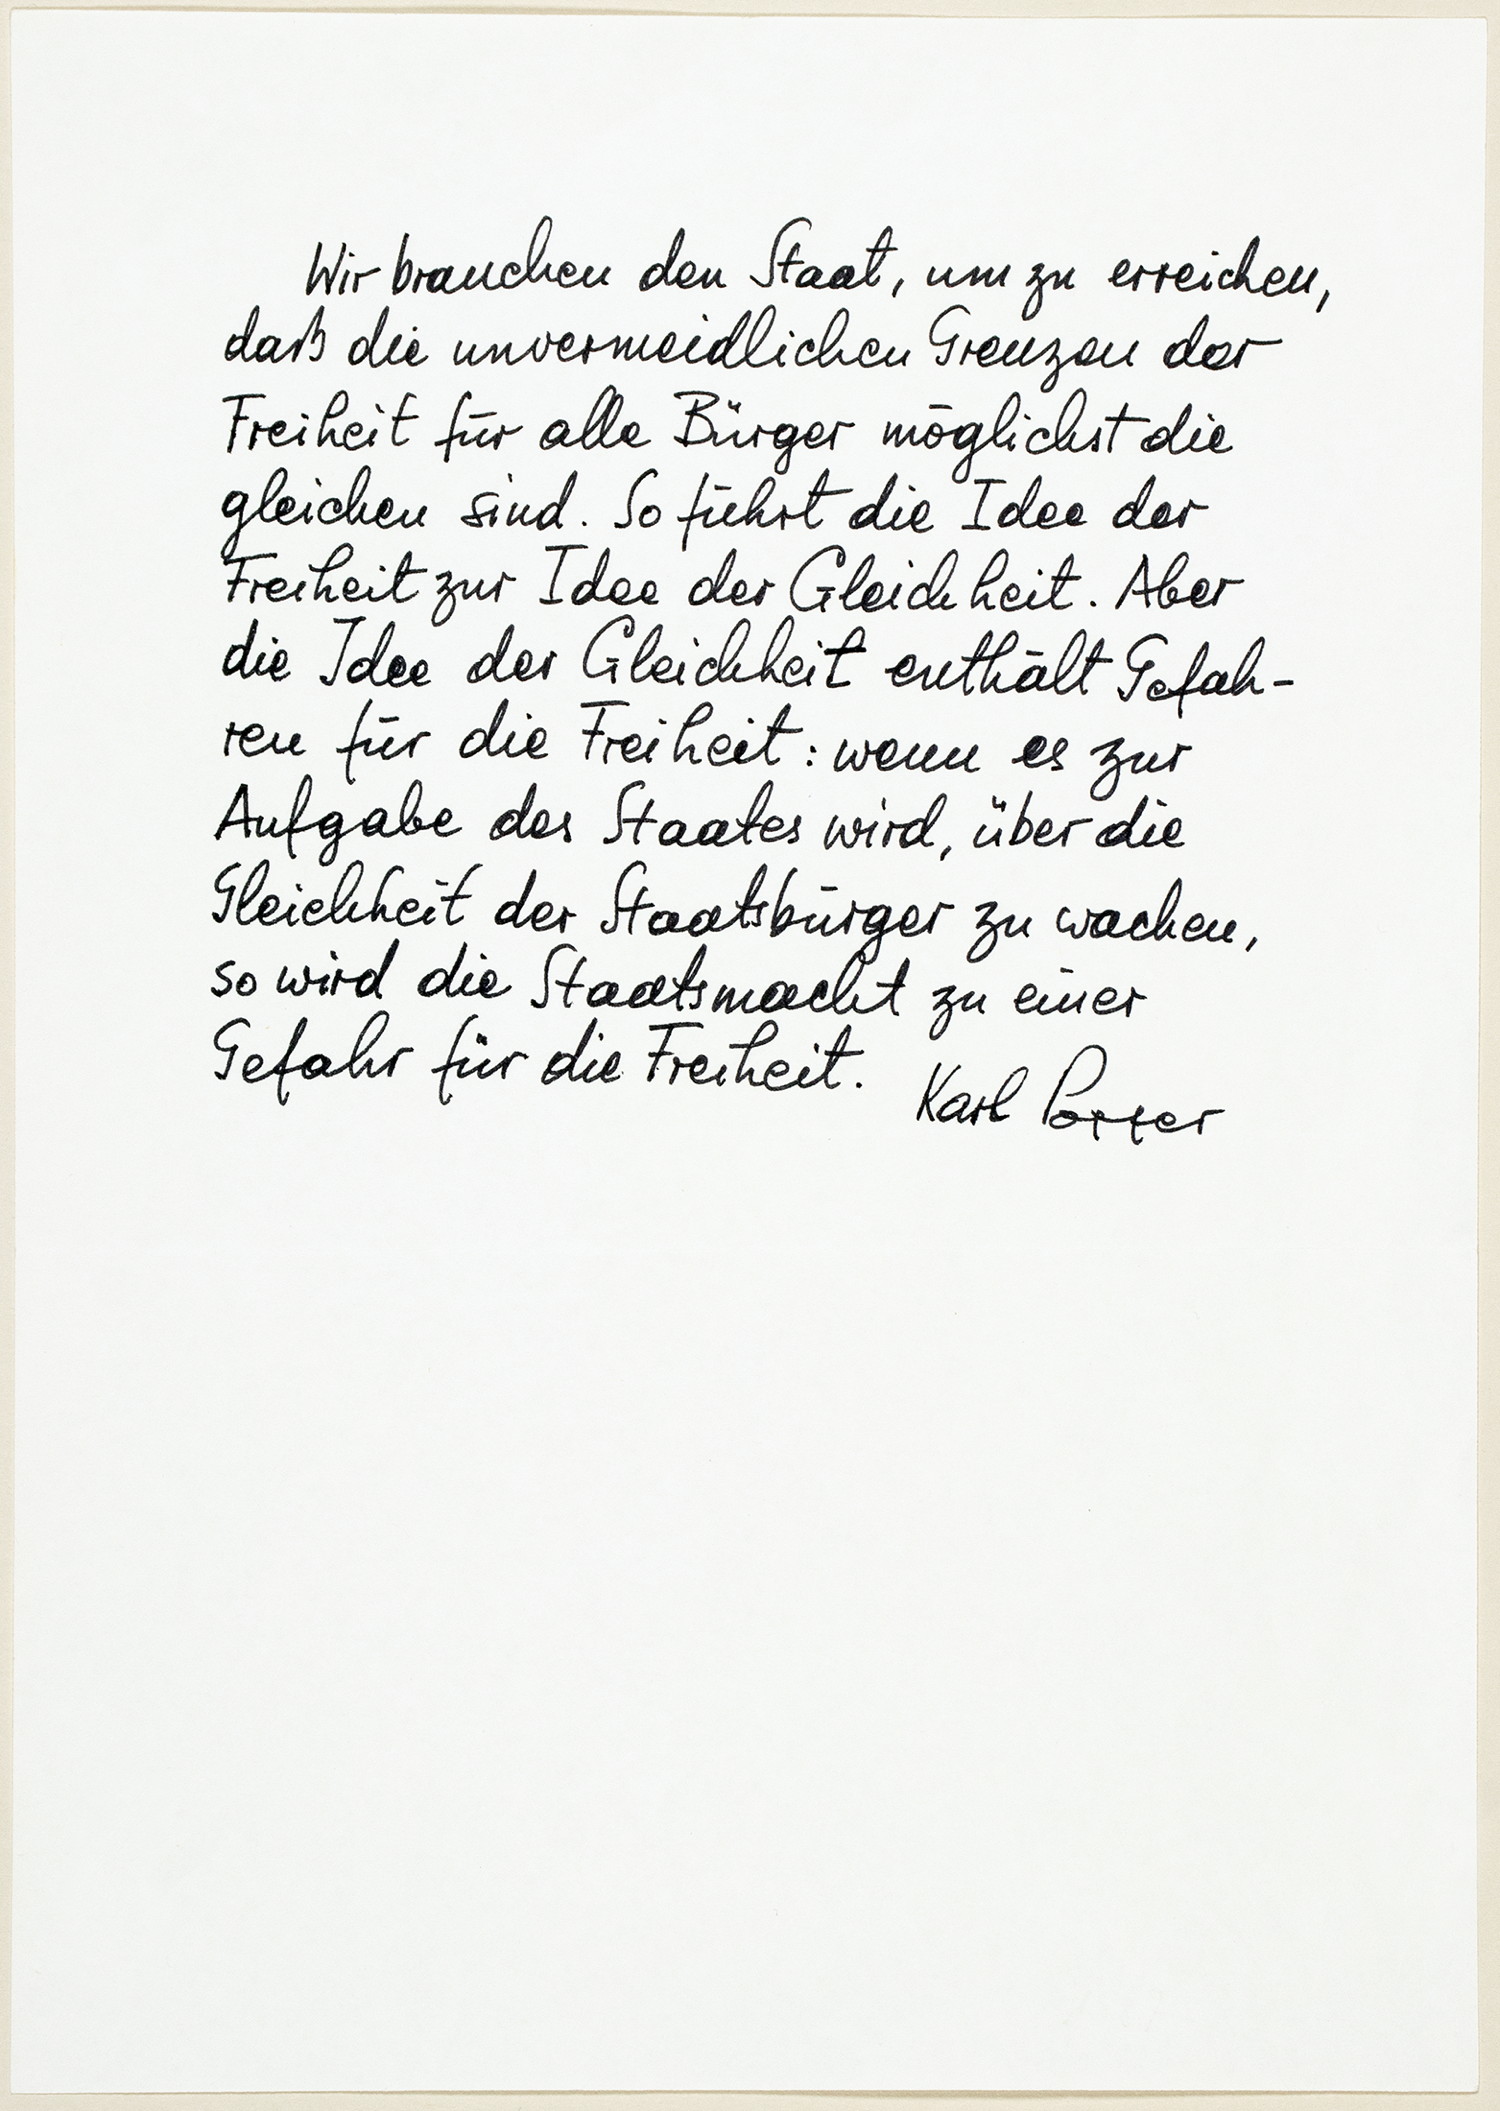 Wir brauchen den Staat, um zu erreichen,
daß die unvermeidlichen Grenzen der
Freiheit für alle Bürger möglichst die
gleichen sind. So führt die Idee der
Freiheit zur Idee der Gleichheit. Aber
die Idee der Gleichheit enthält Gefah-
ren für die Freiheit: wenn es zur
Aufgabe des Staates wird, über die
Gleichheit der Staatsbürger zu wachen,
so wird die Staatsmacht zu einer
Gefahr für die Freiheit.
Karl Popper